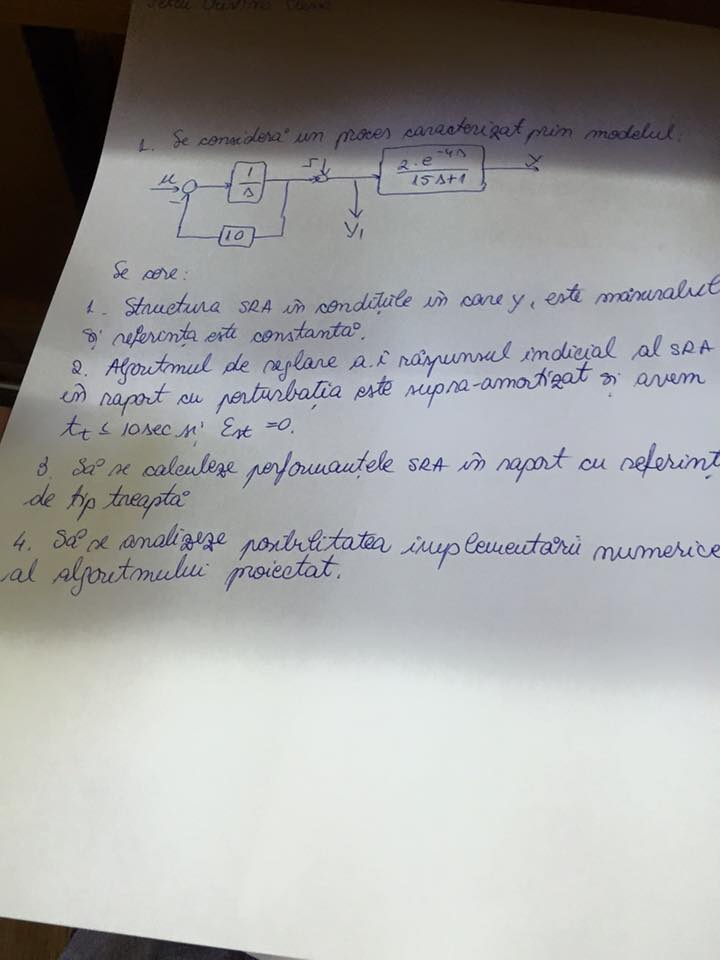 1. Se consideră un proces caracterizat prim modelul:
u
1
s
2·e^-4s
15s+1
y
10
y₁
Se cere:
1. Structura SRA în condițiile în care y, este măsurabilă
și referința este constantă.
2. Algoritmul de reglare a.î răspunsul indicial al SRA
în raport cu perturbația este supra-amortizat și avem
tt ≤ 10sec și Est = 0.
3. Să se calculeze performanțele SRA în raport cu referinț
de tip treaptă
4. Să se analizeze posibilitatea implementării numerice
al algoritmului proiectat.